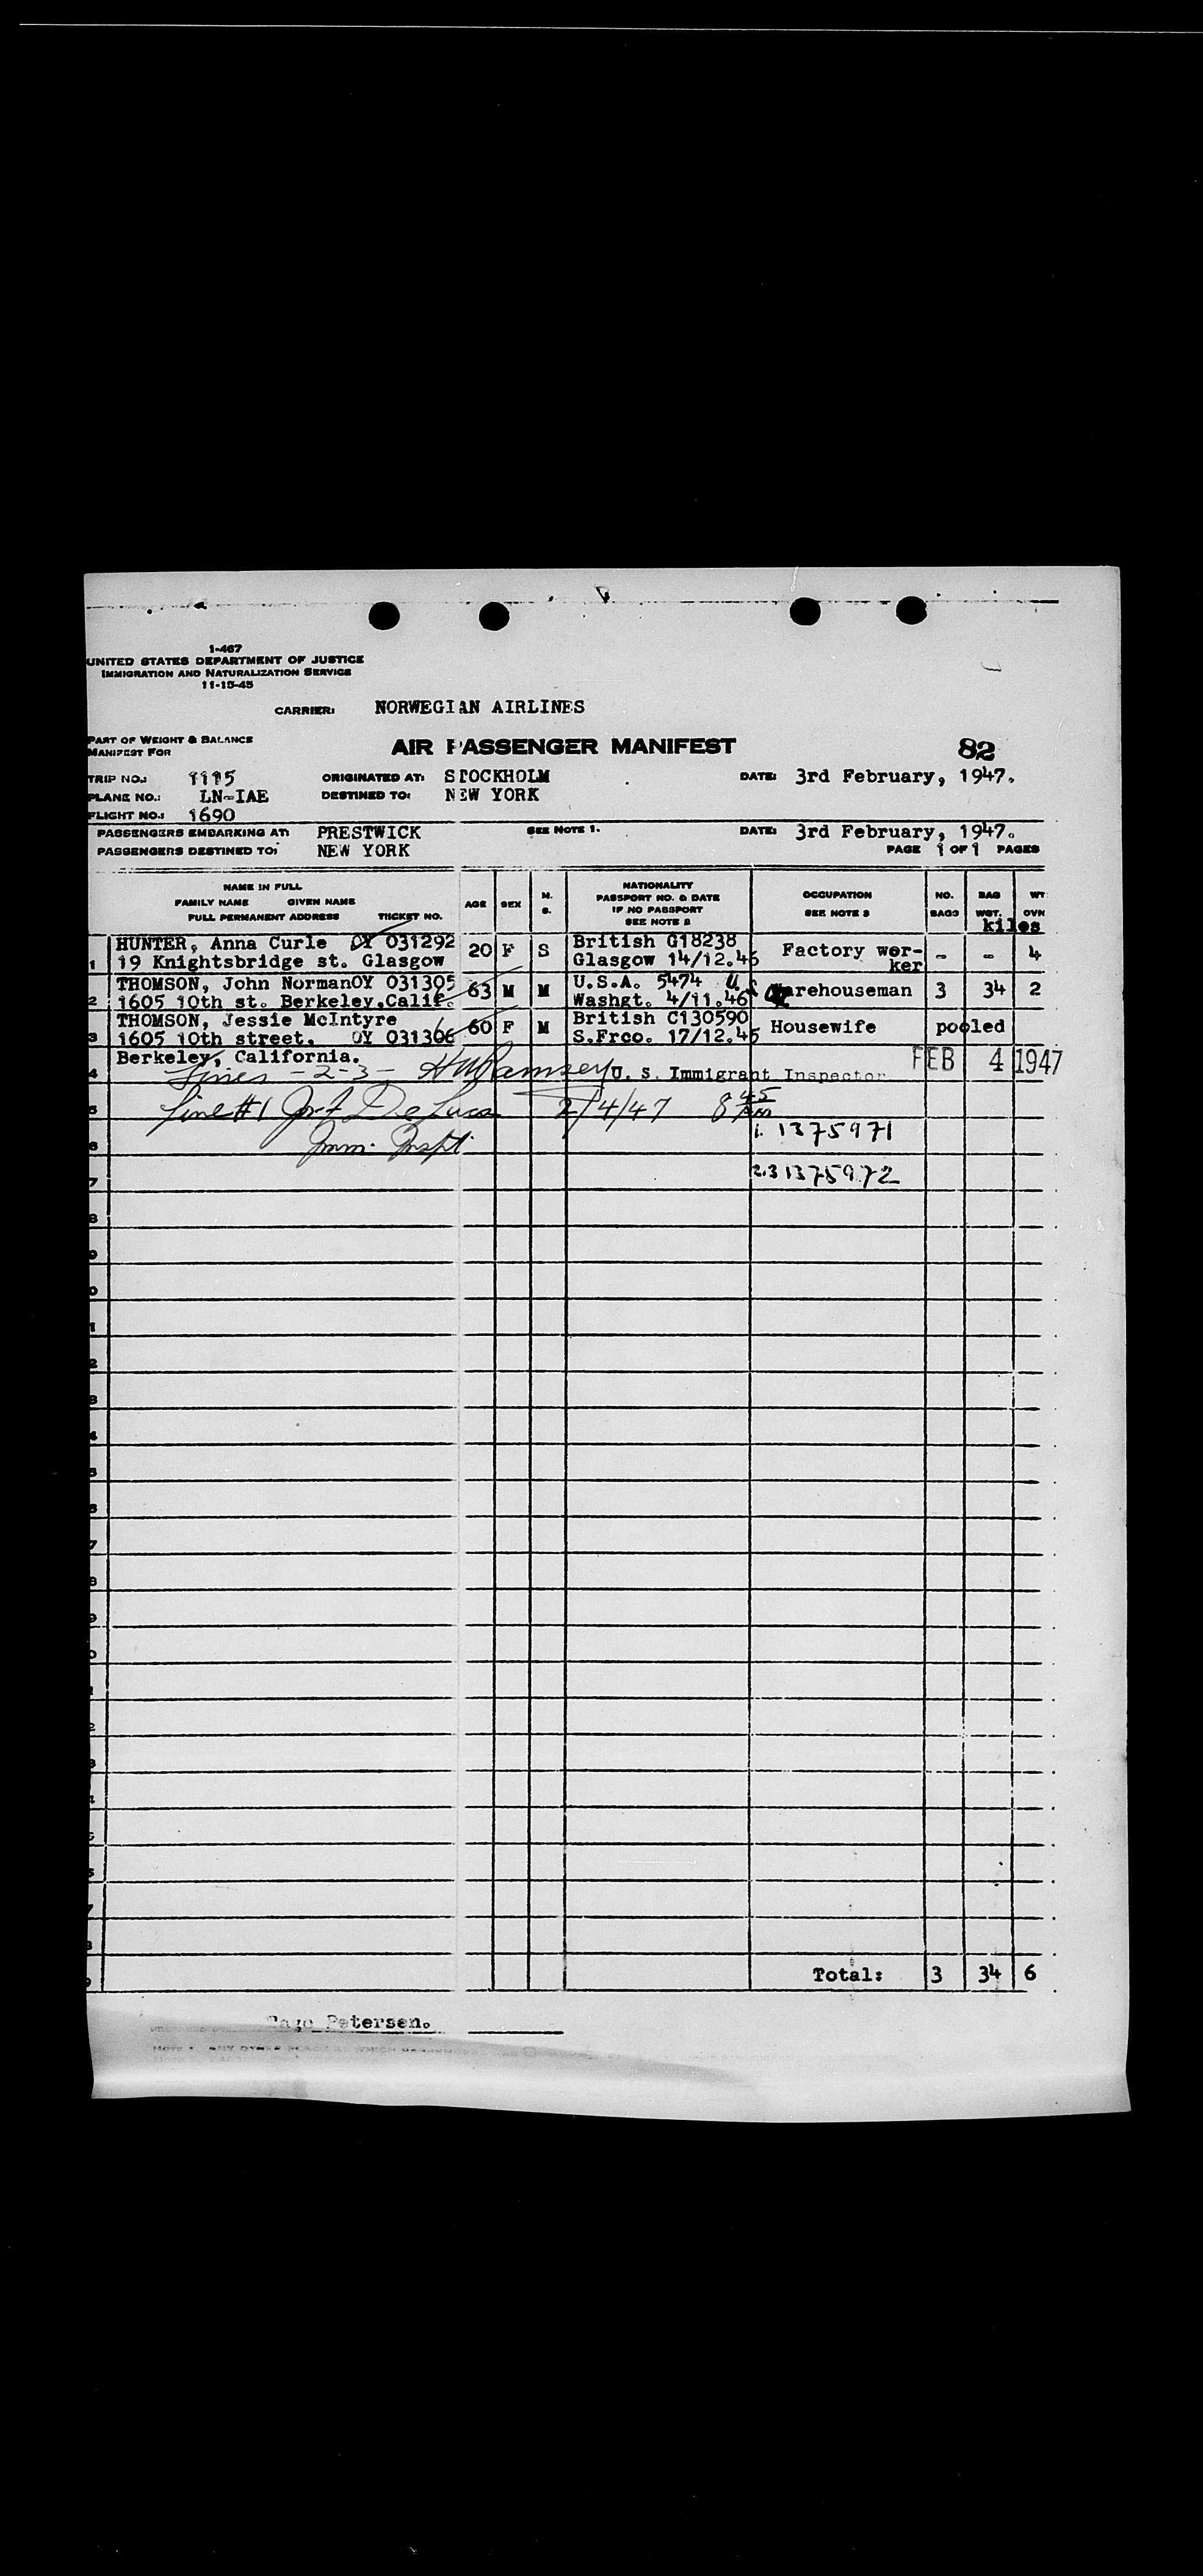 1-467
UNITED STATES DEPARTMENT OF JUSTICE
IMMIGRATION AND NATURALIZATION SERVICE
11-15-45
CARRIER: NORWEGIAN AIRLINES
PART OF WEIGHT & BALANCE
MANIFEST FOR
AIR PASSENGER MANIFEST 82
TRIP NO.: 1115 ORIGINATED AT: STOCKHOLM DATE: 3rd February, 1947.
PLANE NO.: LN-IAE DESTINED TO: NEW YORK
FLIGHT NO.: 1690
PASSENGERS EMBARKING AT: PRESTWICK SEE NOTE 1. DATE: 3rd February, 1947.
PASSENGERS DESTINED TO: NEW YORK PAGE 1 OF 1 PAGES
NAME IN FULL
FAMILY NAME GIVEN NAME
FULL PERMANENT ADDRESS TICKET NO.
AGE SEX M. S.
NATIONALITY
PASSPORT NO. & DATE
IF NO PASSPORT
SEE NOTE 2
OCCUPATION
SEE NOTE 3
NO. BAGS BAG WGT. WT OVN
kilos
HUNTER, Anna Curle OY 031292 20 F S British G18238 Factory wor- - - 4
1 19 Knightsbridge st. Glasgow Glasgow 14/12.46 ker
THOMSON, John Norman OY 031305 63 M M U.S.A. 5474 U.S. Warehouseman 3 34 2
2 1605 10th st. Berkeley, Calif. Washgt. 4/11.46
THOMSON, Jessie McIntyre 60 F M British C130590 Housewife pooled
3 1605 10th street, OY 031306 S.Frco. 17/12.45
Berkeley, California. FEB 4 1947
4 Lines -2-3- HW Ramsey U. S. Immigrant Inspector
5 Line #1 De Luca 2/4/47 8 45 PM
6 Imm. Inspt. 1. 1375971
7 2.3 1375972
8
9
0
1
2
3
4
5
6
7
8
9
0
1
2
3
4
5
6
7
8
9 Total: 3 34 6
Petersen.